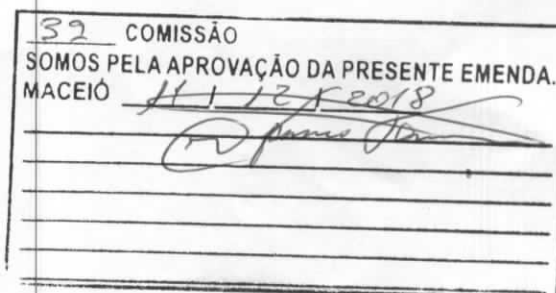 3ª COMISSÃO
SOMOS PELA APROVAÇÃO DA PRESENTE EMENDA.
MACEIÓ 11 / 12 / 2018